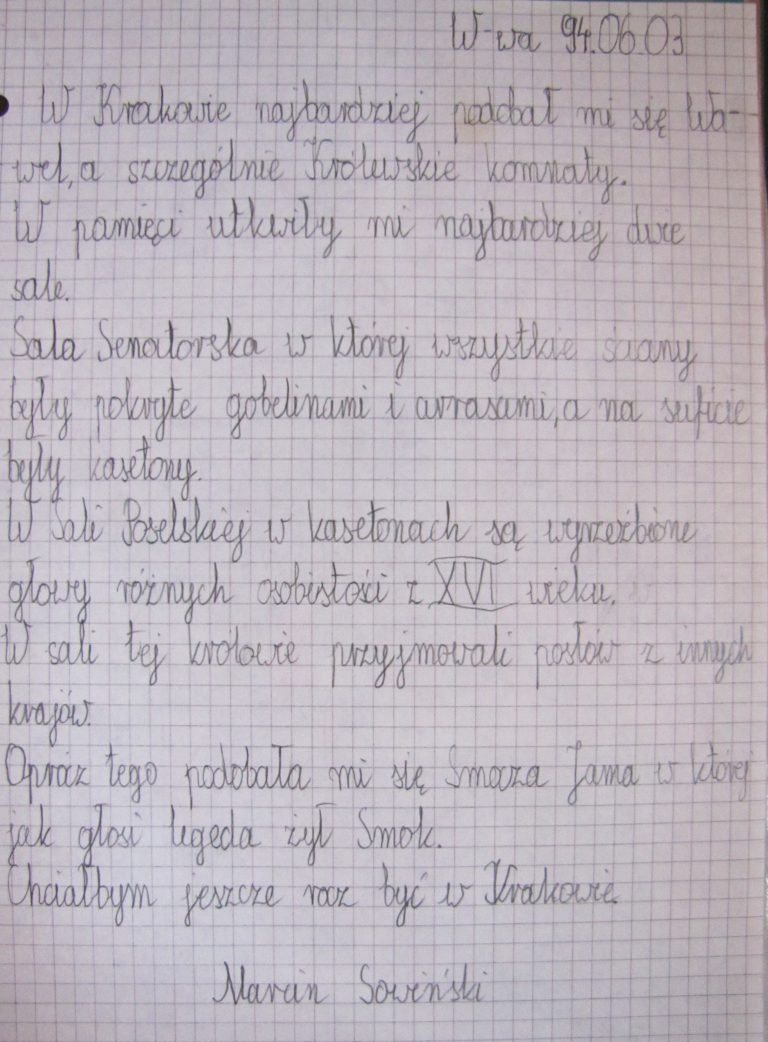 W-wa 94.06.03
W Krakowie najbardziej podobał mi się Wa-
wel, a szczególnie Królewskie komnaty.
W pamięci utkwiły mi najbardziej dwie
sale.
Sala Senatorska w której wszystkie ściany
były pokryte gobelinami i arrasami, a na suficie
były kasetony.
W Sali Poselskiej w kasetonach są wyrzeźbione
głowy różnych osobistości z XVI wieku.
W sali tej królowie przyjmowali posłów z innych
krajów.
Oprócz tego podobała mi się Smocza Jama w której
jak głosi legęda żył Smok.
Chciałbym jeszcze raz być w Krakowie.
Marcin Sowiński